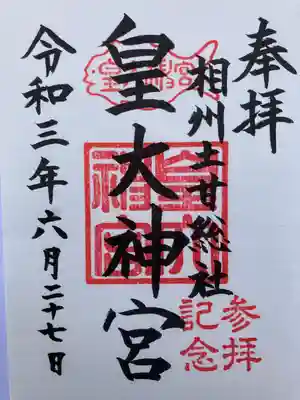 奉拝
相州土甘総社
皇大神宮
参拝
記念
令和三年六月二十七日